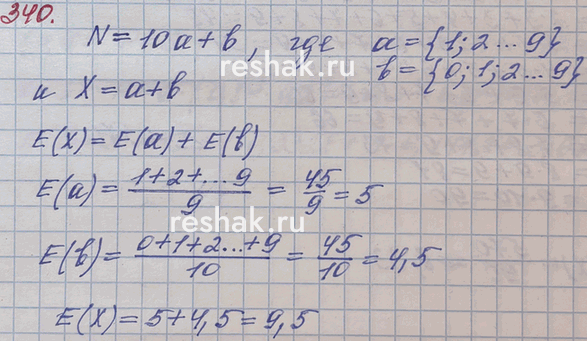 340.
N = 10a + b, где a = {1; 2 ... 9}
b = {0; 1; 2 ... 9}
reshak.ru
и X = a + b
E(X) = E(a) + E(b)
E(a) = (1+2+...9)/9 = 45/9 = 5
reshak.ru
E(b) = (0+1+2...+9)/10 = 45/10 = 4,5
E(X) = 5 + 4,5 = 9,5